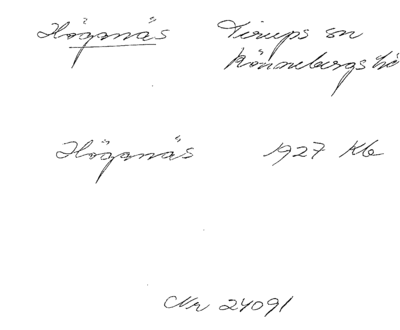 Höganäs Tirups sn
Rönnebergs hd
Höganäs 1927 Kb
Nr 24091